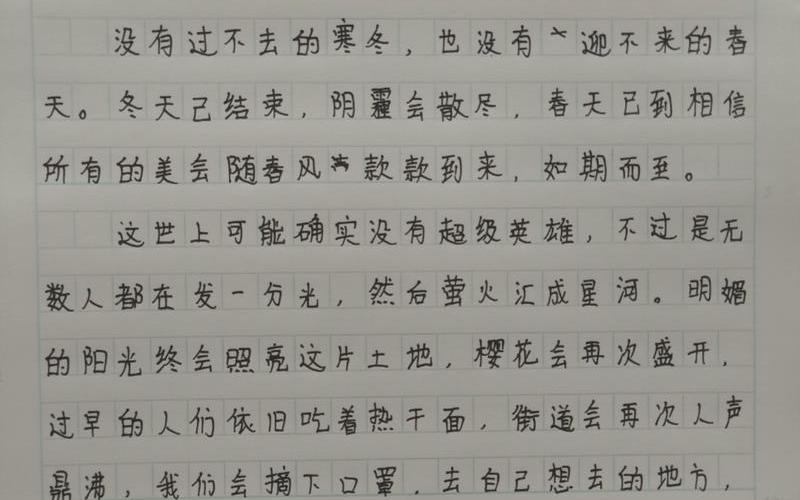 没有过不去的寒冬，也没有迎不来的春
天。冬天已结束，阴霾会散尽，春天已到相信
所有的美会随春风款款到来，如期而至。
这世上可能确实没有超级英雄，不过是无
数人都在发一分光，然后萤火汇成星河。明媚
的阳光终会照亮这片土地，樱花会再次盛开，
过早的人们依旧吃着热干面，街道会再次人声
鼎沸，我们会摘下口罩，去自己想去的地方，